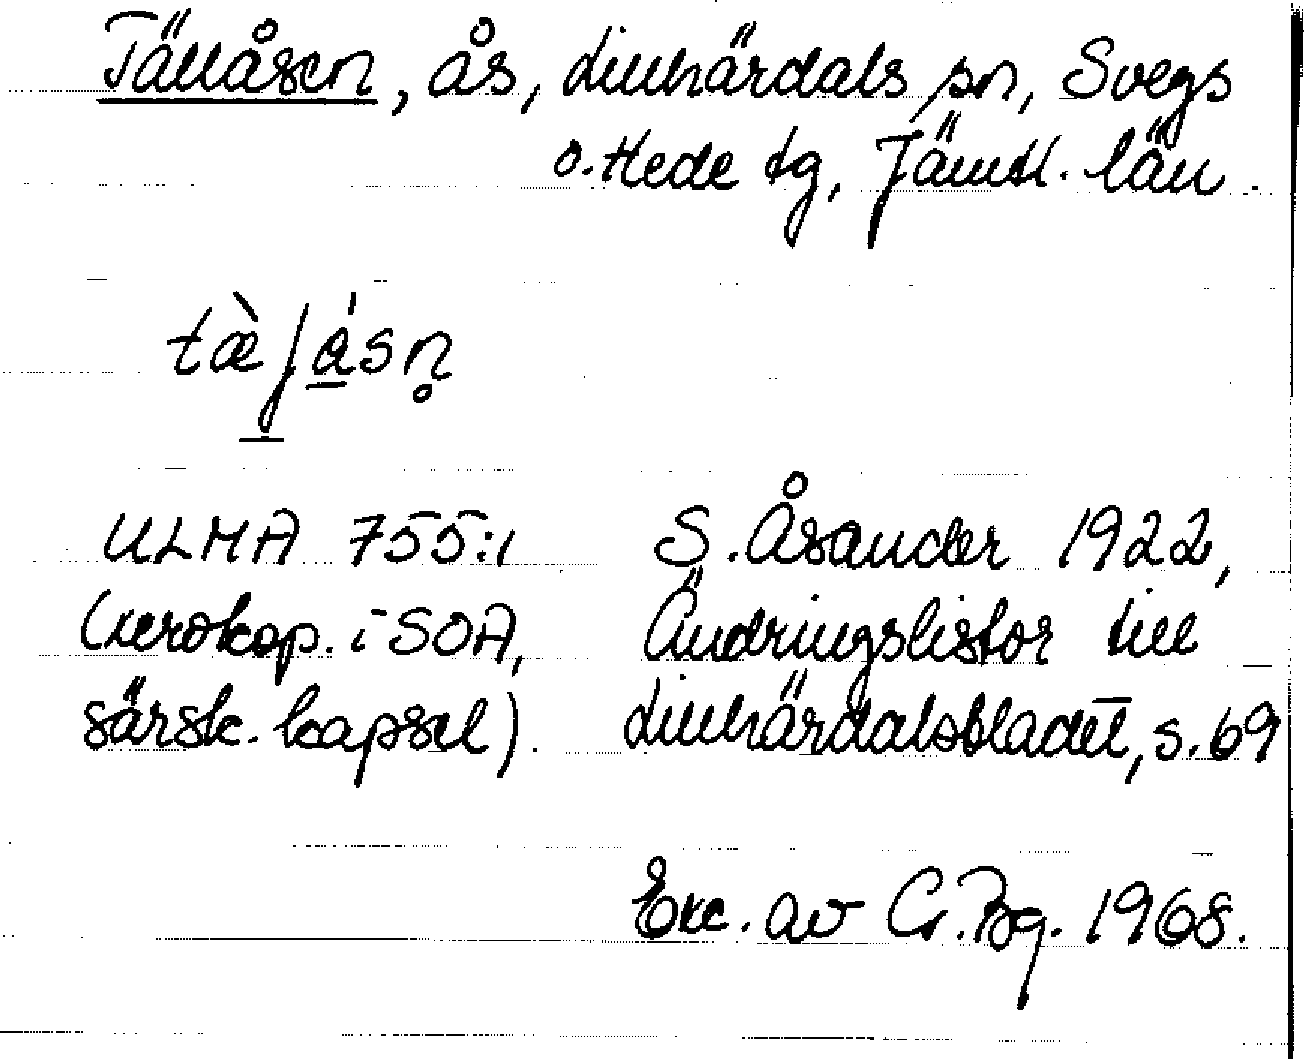 Tällåsen, ås, Lillhärdals sn, Svegs
o. Hede tg, Jämtl. län
ULMA 755:1 S. Åsander 1922,
(xerokop. i SOA, Ändringslistor till
särsk. kapsel). Lillhärdalsbladet, s. 69
Exc. av G. Bg. 1968.